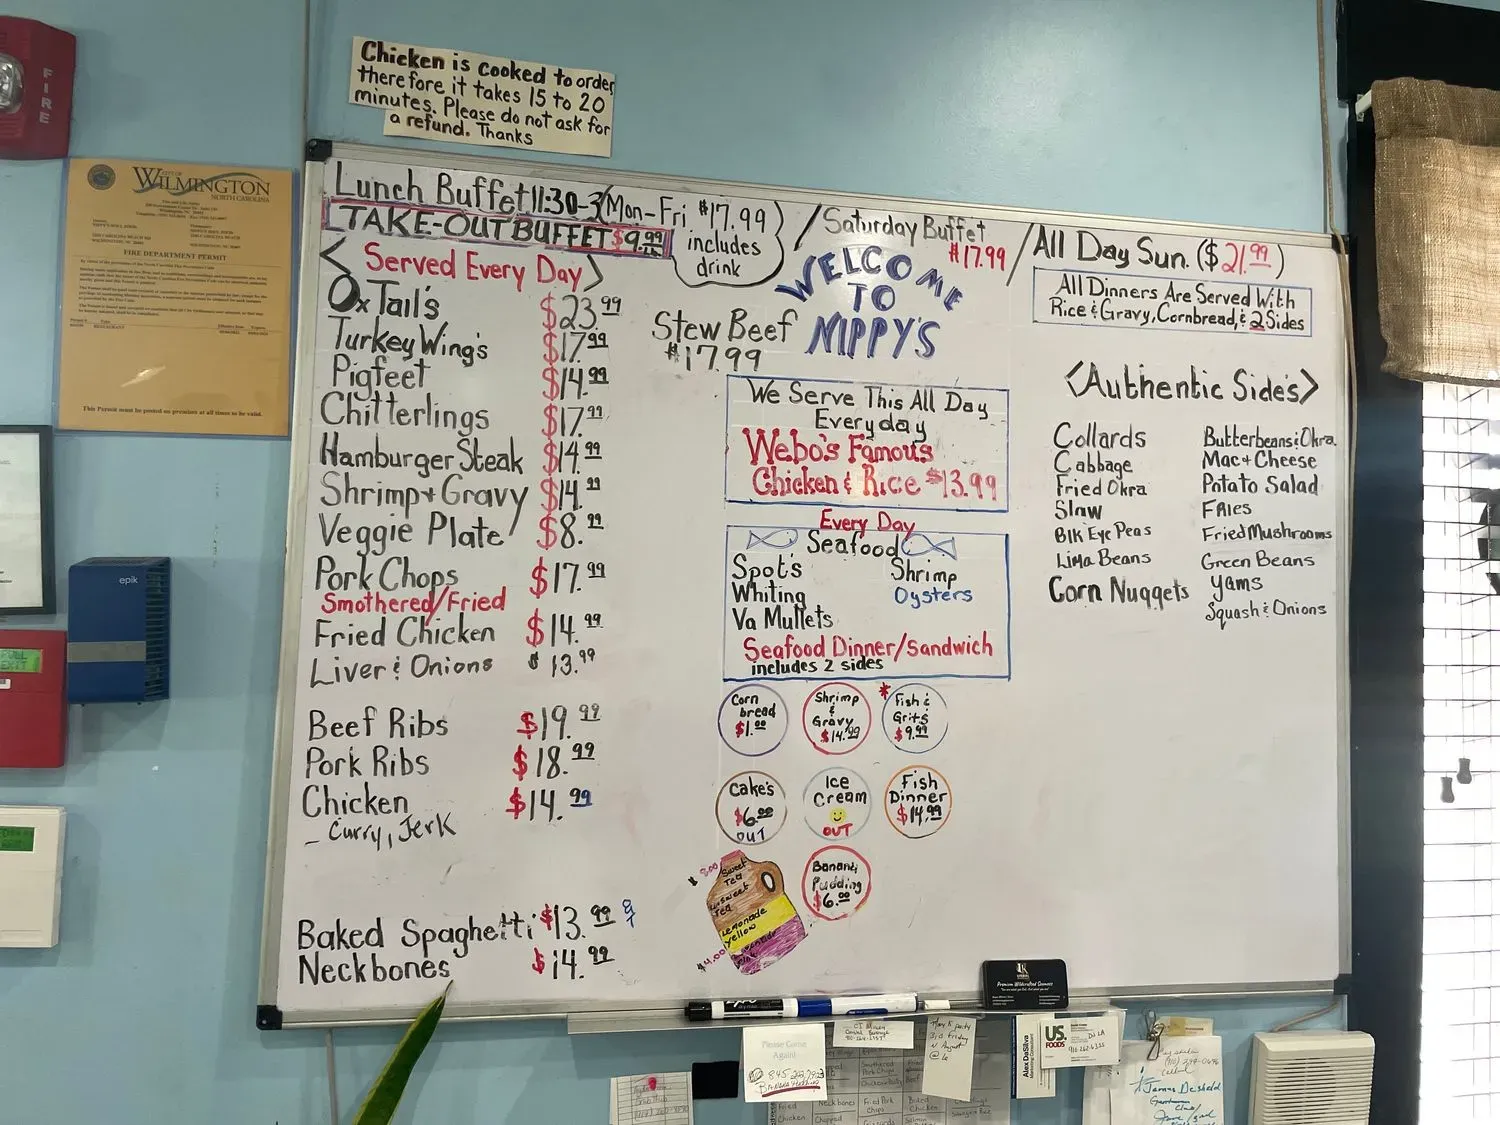 Chicken is cooked to order
therefore it takes 15 to 20
minutes. Please do not ask for
a refund. Thanks
FIRE
CITY OF
WILMINGTON
NORTH CAROLINA
FIRE DEPARTMENT PERMIT
This Permit must be posted on premises at all times to be valid.
epik
Lunch Buffet 11:30-3 (Mon-Fri $17.99
includes
drink
TAKE-OUT BUFFET $9.99
Saturday Buffet
$17.99
All Day Sun. ($21.99)
<Served Every Day>
Ox Tail's $23.99
Turkey Wing's $17.99
Pigfeet $14.99
Chitterlings $17.99
Hamburger Steak $14.99
Shrimp + Gravy $14.99
Veggie Plate $8.99
Pork Chops $17.99
Smothered/Fried
Fried Chicken $14.99
Liver & Onions $13.99
Beef Ribs $19.99
Pork Ribs $18.99
Chicken $14.99
- Curry, Jerk
Baked Spaghetti $13.99
Neckbones $14.99
Stew Beef
$17.99
WELCOME
TO
NIPPY'S
We Serve This All Day
Everyday
Webo's Famous
Chicken & Rice $13.99
Every Day
Seafood
Spot's Shrimp
Whiting Oysters
Va Mullets
Seafood Dinner/Sandwich
includes 2 sides
Corn
bread
$1.00
Shrimp
&
Gravy
$14.99
* Fish &
Grits
$9.99
Cake's
$6.00
OUT
Ice
Cream
OUT
Fish
Dinner
$14.99
Banana
Pudding
$6.00
Sweet
Tea
Unsweet
Tea
Lemonade
yellow
$4.00
All Dinners Are Served With
Rice & Gravy, Cornbread, & 2 Sides
<Authentic Side's>
Collards
Cabbage
Fried Okra
Slaw
Blk Eye Peas
Lima Beans
Corn Nuggets
Butterbeans & Okra
Mac + Cheese
Potato Salad
Fries
Fried Mushrooms
Green Beans
Yams
Squash & Onions
EXPO
Please Come
Again!
Alex DaSilva
US.
FOODS
Neckbones
Fried
Chicken
Fried Pork
Chops
Baked
Chicken
James